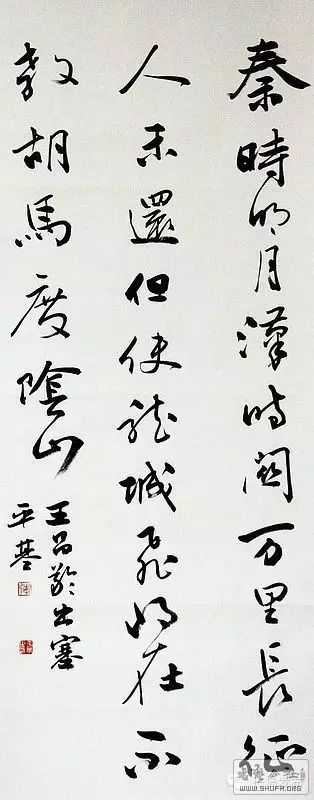 秦時明月漢時關万里長征
人未還但使龍城飛将在不
教胡馬度陰山
王昌齡出塞
平基
WWW.SHUFA.ORG